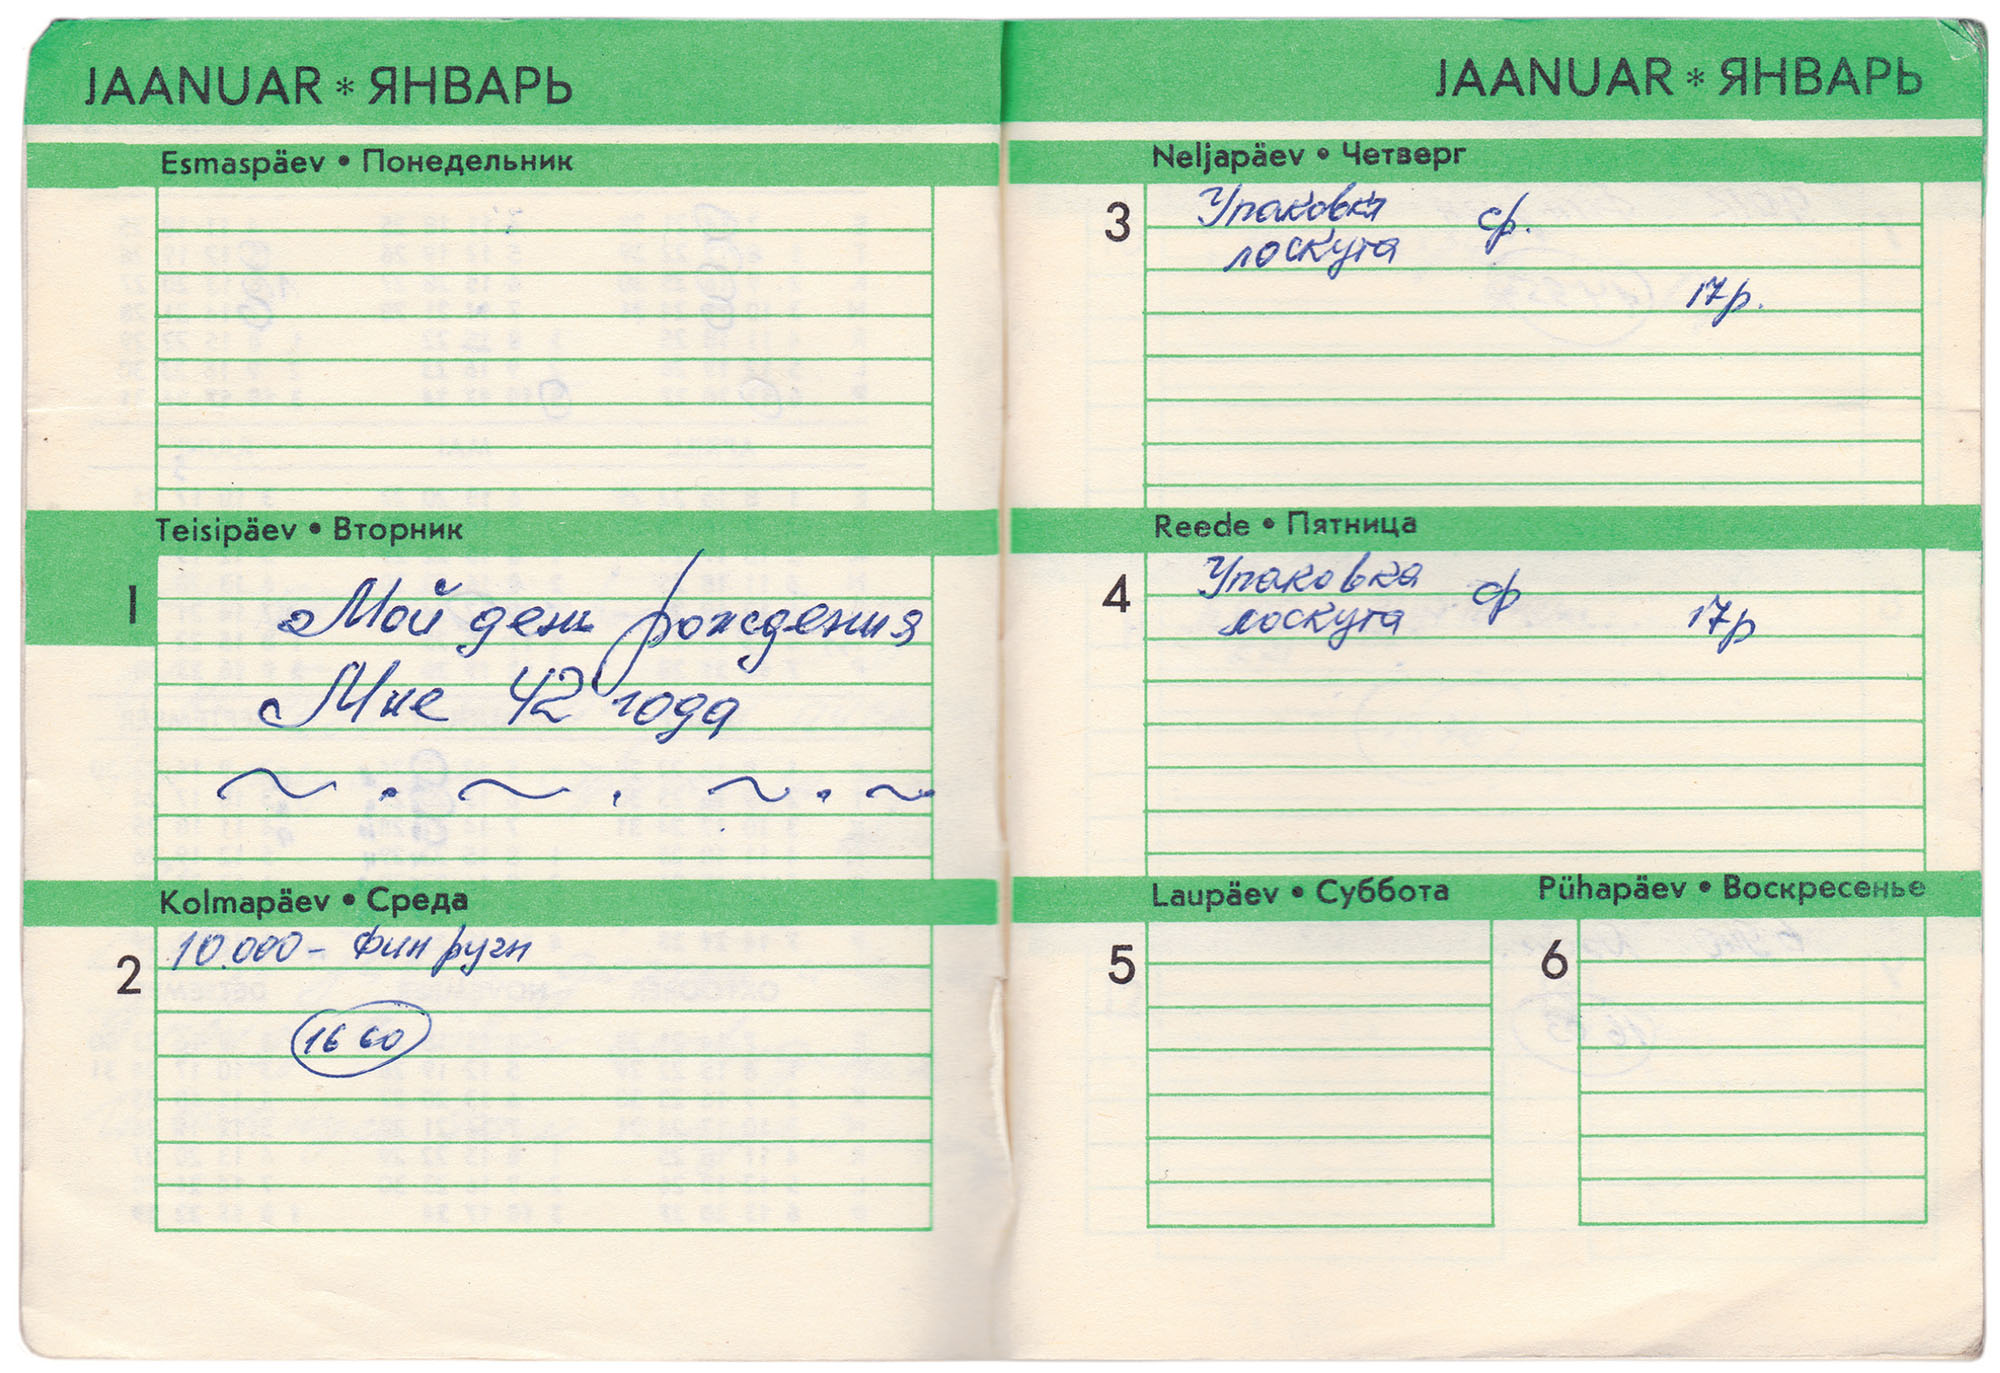 JAANUAR * ЯНВАРЬ
Esmaspäev • Понедельник
Teisipäev • Вторник
1
Мой день рождения
Мне 42 года
~ . ~ . ~ . ~
Kolmapäev • Среда
2
10.000 – фин ругн
16 60
JAANUAR * ЯНВАРЬ
Neljapäev • Четверг
3
Упаковка ф.
лоскута
17р.
Reede • Пятница
4
Упаковка ф
лоскута 17р
Laupäev • Суббота
5
Pühapäev • Воскресенье
6